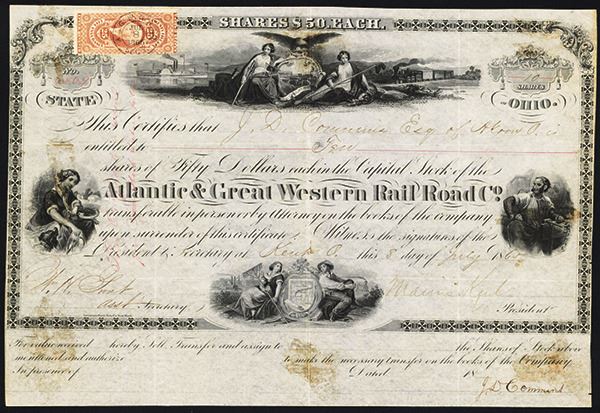 SHARES $50. EACH.
No.
10
SHARES
STATE
OHIO.
This Certifies that J. D. Commins Esq of Akron O. is
entitled to Ten
shares of Fifty Dollars each in the Capital Stock of the
Atlantic & Great Western Rail Road Co.
transferable in person or by attorney on the books of the company
upon surrender of this certificate. Witness the signatures of the
President & Secretary at Kent O. this 8 day of July 186
asst Secretary
President
For value received hereby Sell, Transfer and assign to the Shares of Stock above
mentioned and authorize to make the necessary transfer on the books of the Company.
In presence of Dated 18
J. D. Commins